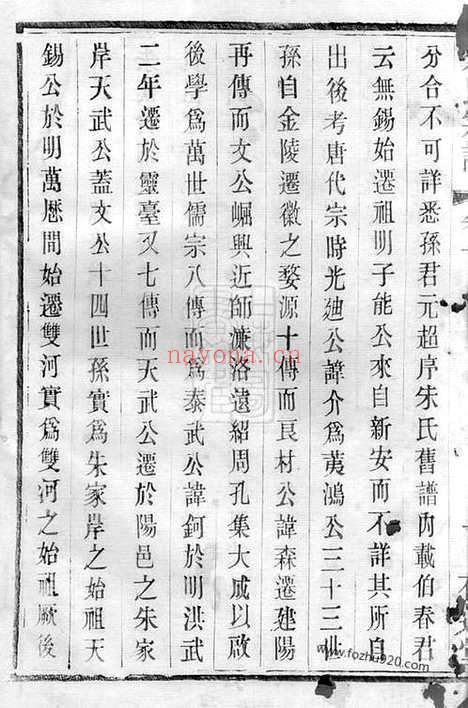 分合不可詳悉孫君元超序朱氏舊譜內載伯春君
云無錫始遷祖明子能公來自新安而不詳其所自
出後考唐代宗時光廸公諱介爲萸鴻公三十三世
孫自金陵遷徽之婺源十傳而良材公諱森遷建陽
再傳而文公崛興近師濂洛遠紹周孔集大成以啟
後學爲萬世儒宗八傳而爲泰武公諱鈳於明洪武
二年遷於靈臺又七傳而天武公遷於陽邑之朱家
岸天武公蓋文公十四世孫實爲朱家岸之始祖天
錫公於明萬曆間始遷雙河實爲雙河之始祖厥後
nayona.cn
www.fozhu920.com